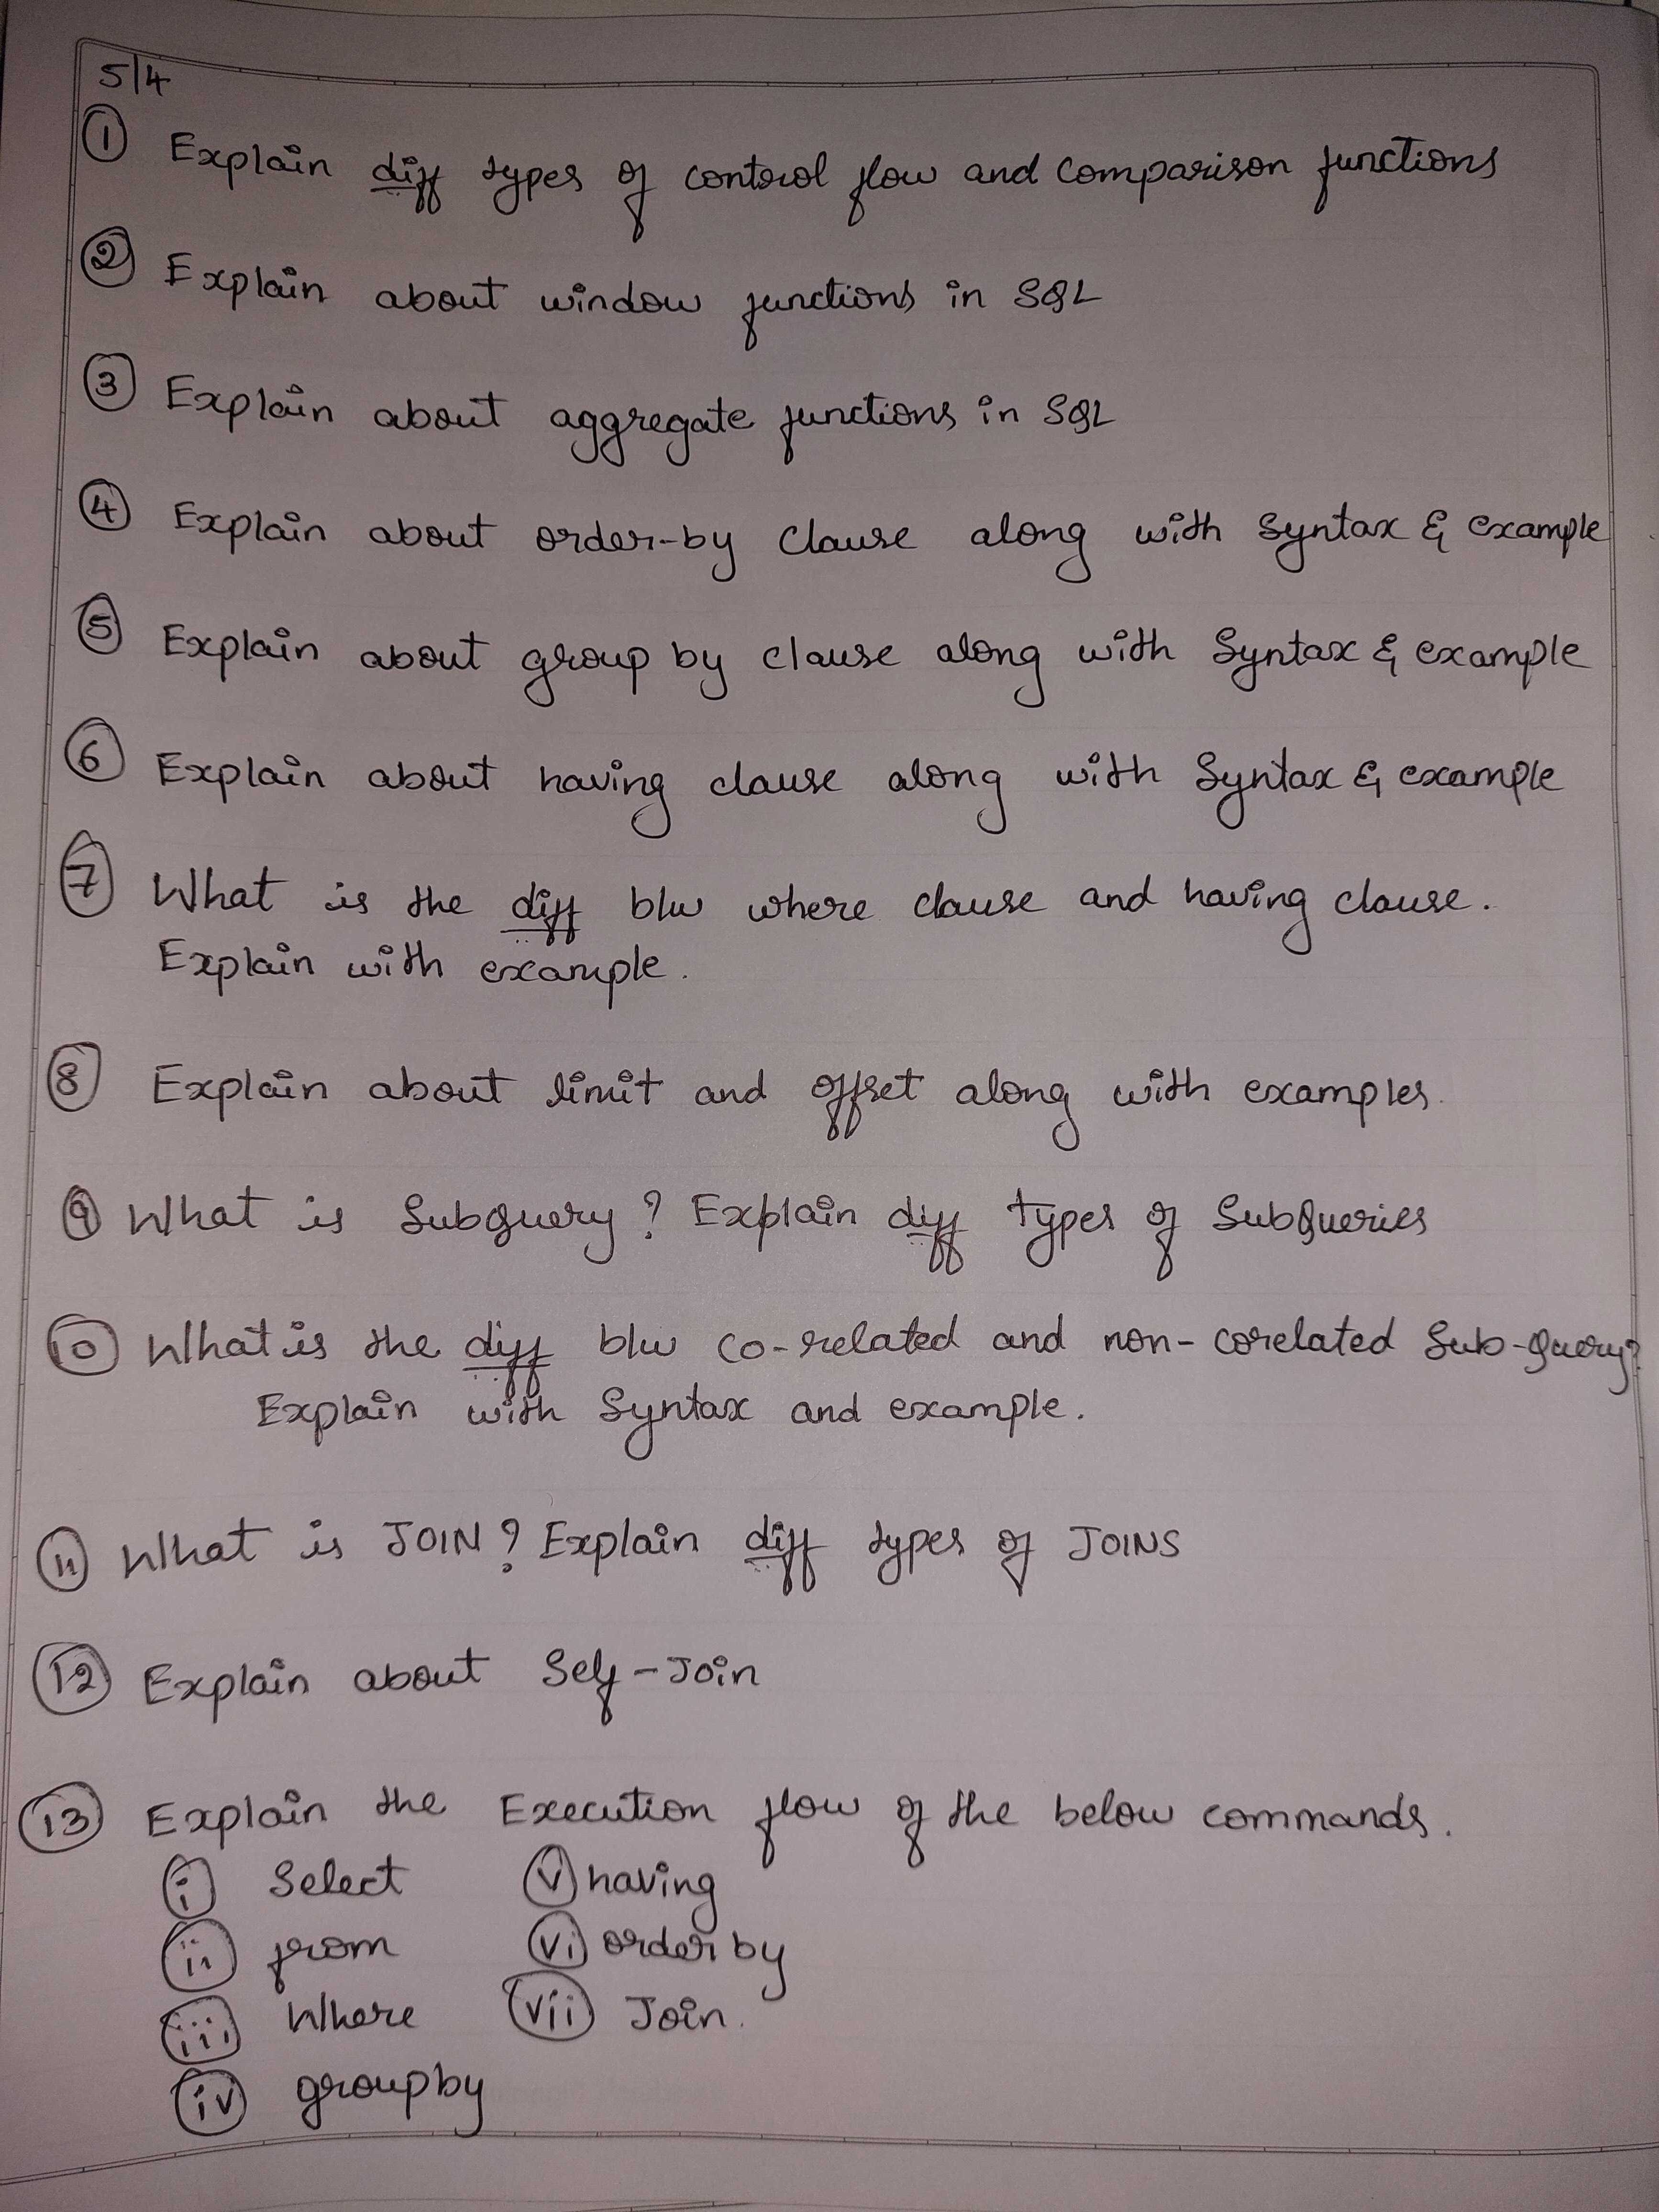 5/4
① Explain diff types of control flow and comparison functions
② Explain about window functions in SQL
③ Explain about aggregate functions in SQL
④ Explain about order-by clause along with Syntax & example
⑤ Explain about group by clause along with Syntax & example
⑥ Explain about having clause along with Syntax & example
⑦ What is the diff b/w where clause and having clause.
Explain with example.
⑧ Explain about limit and offset along with examples.
⑨ What is Subquery? Explain diff types of SubQueries
⑩ What is the diff b/w co-related and non-corelated Sub-Query?
Explain with Syntax and example.
⑪ What is JOIN? Explain diff types of JOINS
⑫ Explain about Self-Join
⑬ Explain the Execution flow of the below commands.
i Select v having
ii from vi order by
iii Where vii Join.
iv group by